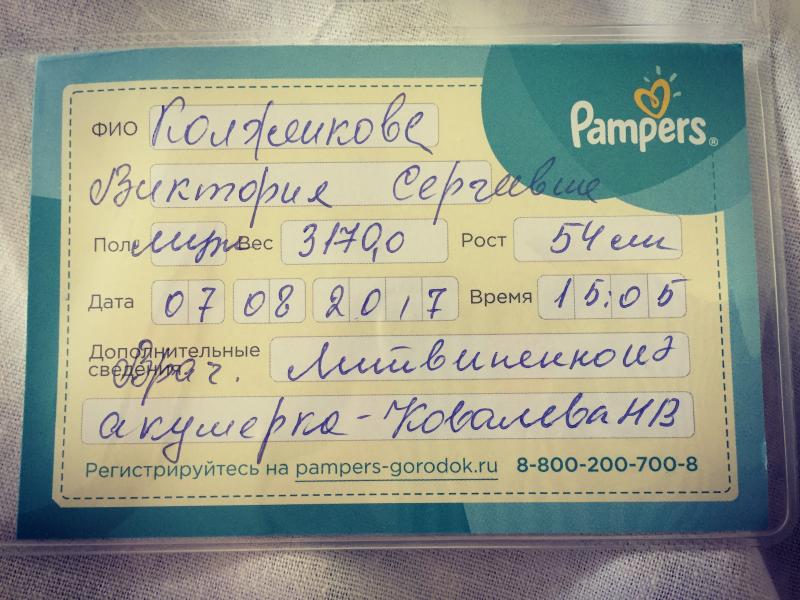 Pampers®
ФИО Колжикова
Виктория Сергеевна
Пол муж Вес 3170,0 Рост 54 см
Дата 07 08 2017 Время 15:05
Дополнительные сведения Врач. Литвиненко
акушерка - Ковалева НВ
Регистрируйтесь на pampers-gorodok.ru 8-800-200-700-8